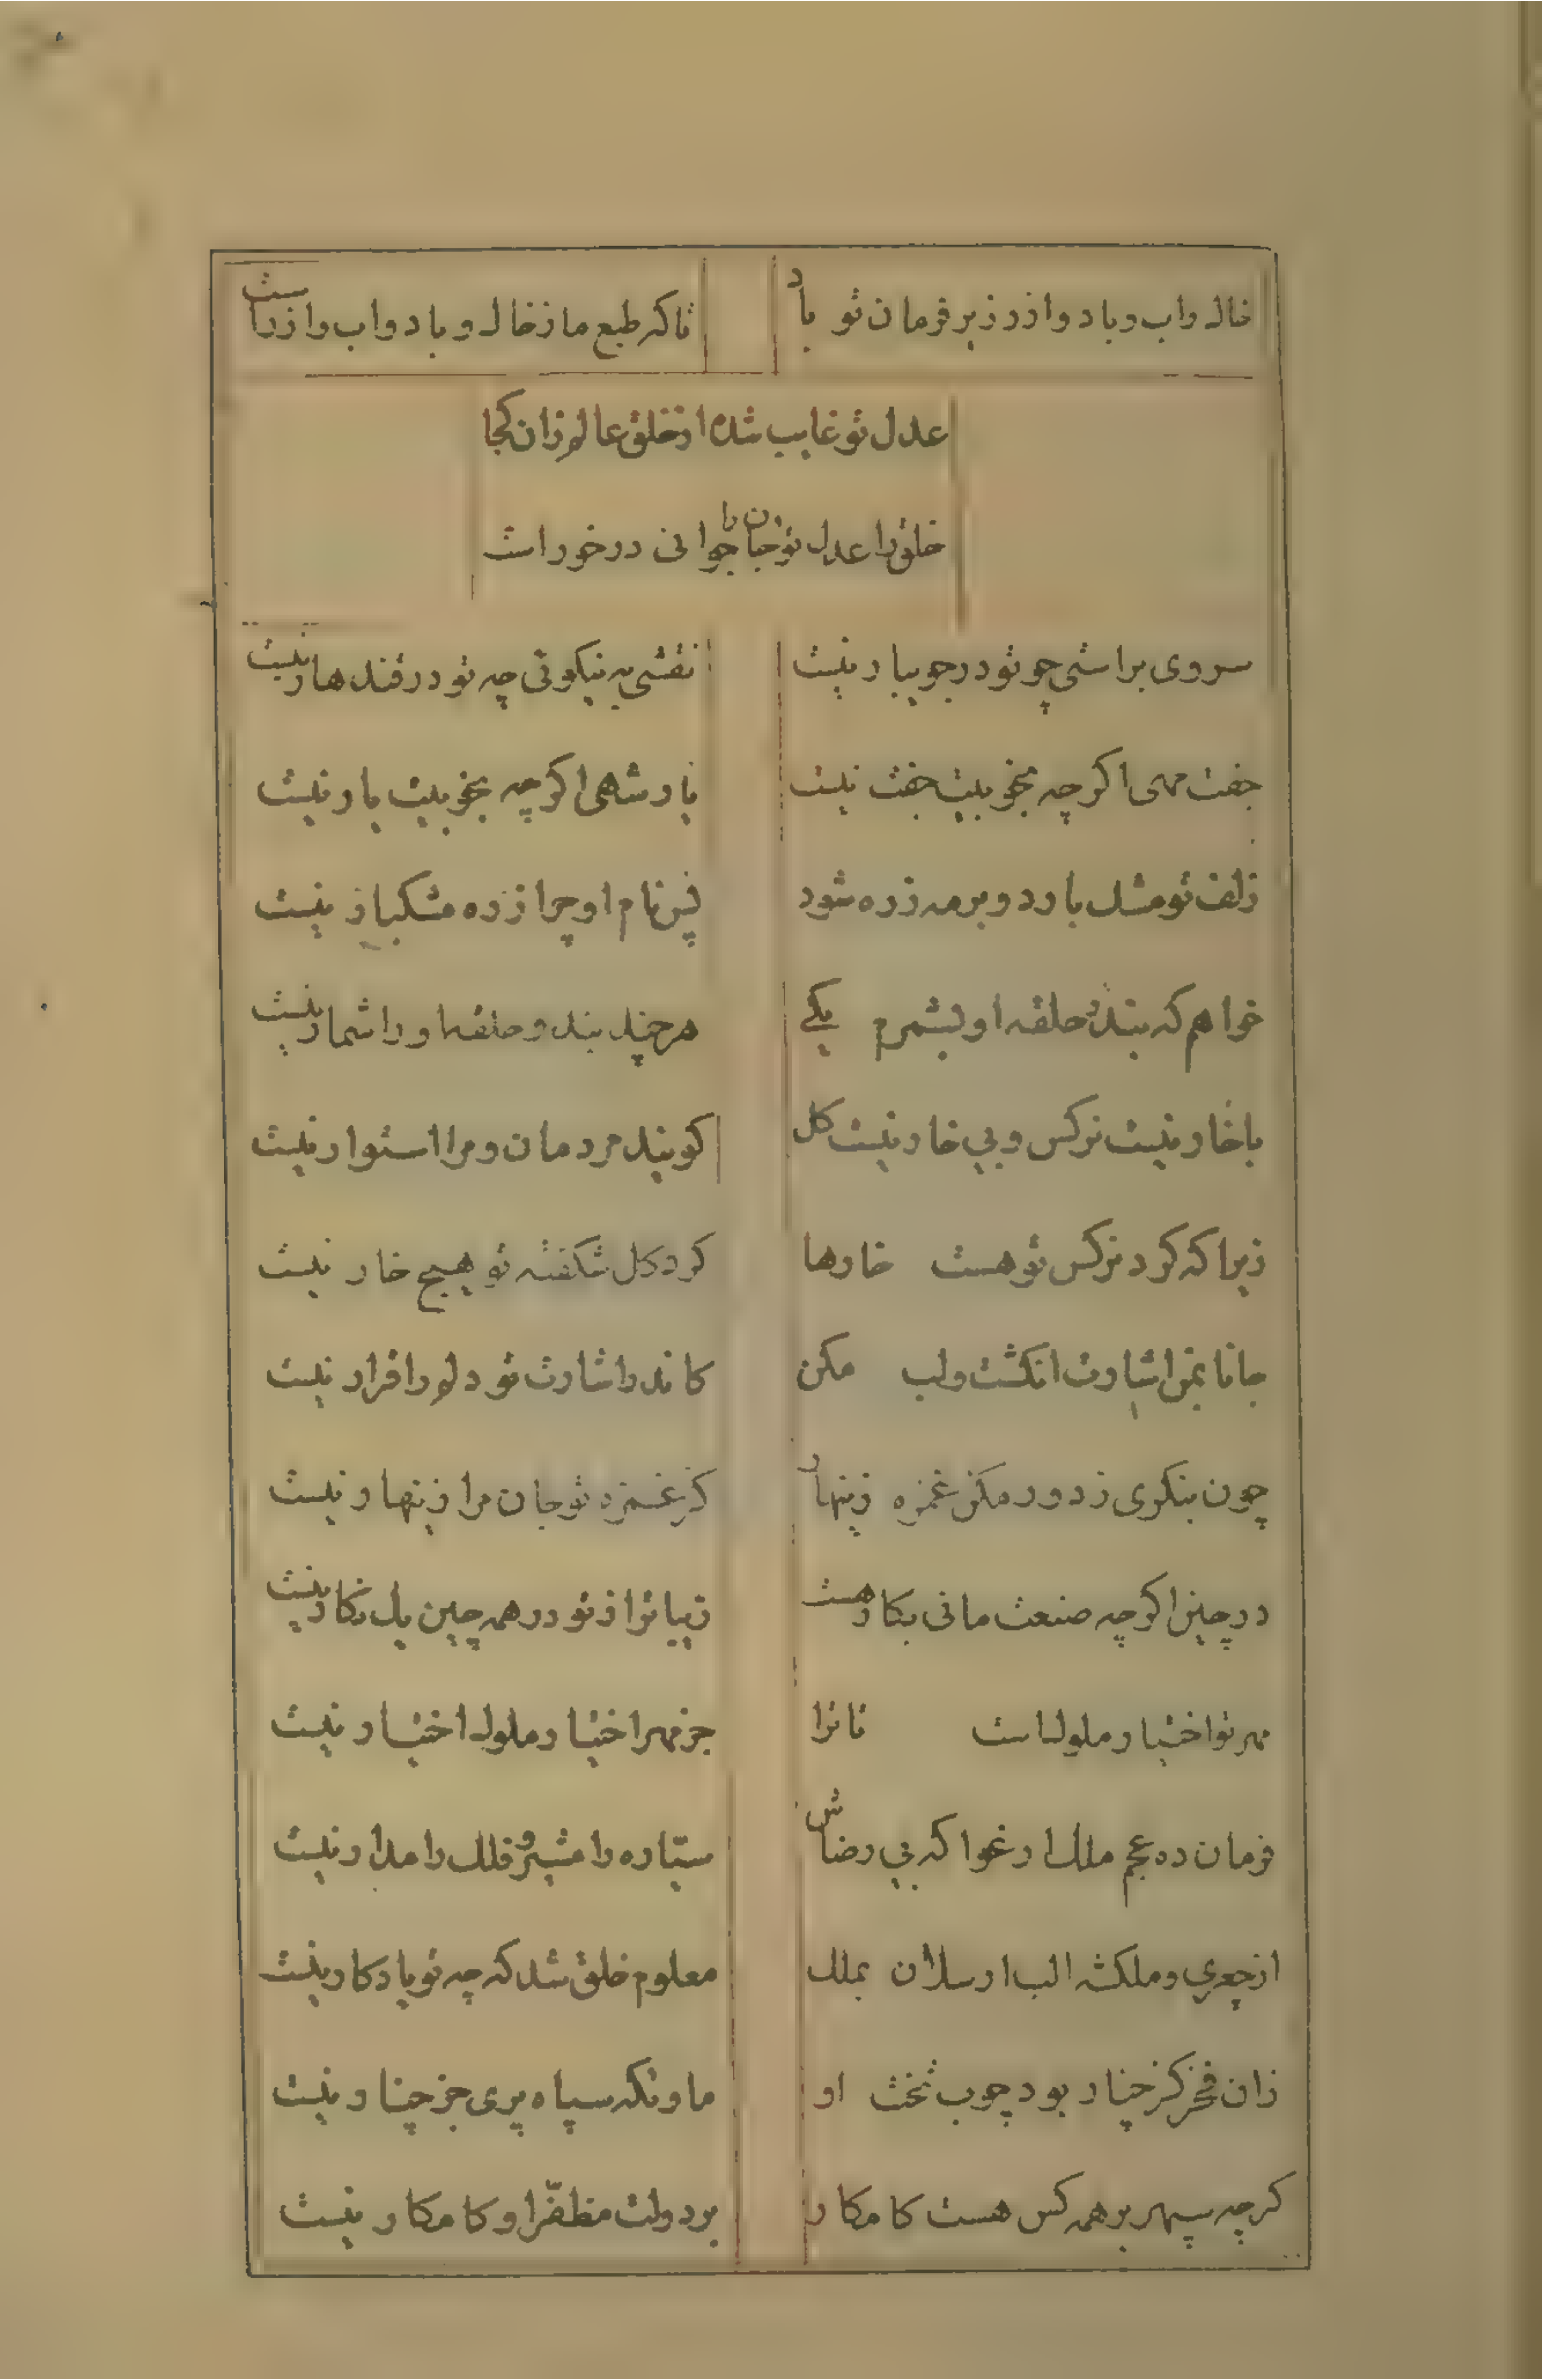 خاك واب وباد واذر زیر فرمان تو باد
تا که طبع ما ز خاك و باد واب واذر است
عدل تو غایب شده از خلق عالم زان کجا
خلق را عدل تو چون جان با جوانی درخور است
سروی براستی چو تو در جویبار نیست
نقشی به نیکوئی چه تو در قندهار نیست
جفت مهی اکرچه بخوبیت جفت نیست
یار شاهی اکرچه بخوبیت یار نیست
زلف تو مشك بارد و بر مه زره شود
پس نام او چرا زره مشکبار نیست
خواهم که بند و حلقه او بشمرم یکی
هرچند بند و حلقه او را شمار نیست
با خار نیست نرکس و بی خار نیست کل
کویند مردمان و مرا استوار نیست
زیرا که کرد نرکس تو هست خارها
کرد کل شکفته تو هیچ خار نیست
جانا بمن اشارت انکشت ولب مکن
کاندر اشارت تو دلم را قرار نیست
چون بنکری ز دور مکن غمزه زینهار
کز غمزه تو جان مرا زینهار نیست
در چین اکرچه صنعت مانی بکار هست
زیباتر از تو در همه چین یك نکار نیست
مهر تو اختیار ملوك است تا ترا
جز مهر اختیار ملوك اختیار نیست
فرمان ده عجم ملك ارغوا که بی رضاش
ستاره را مسیر و فلك را مدار نیست
از چغری وملکشه الب ارسلان بملك
معلوم خلق شد که چه تو یادکار نیست
زان فخر کز چنار بود چوب تخت او
ماونکه سپاه پری جز چنار نیست
کرچه سپهر بر همه کس هست کامکار
بر دولت مظفر او کامکار نیست